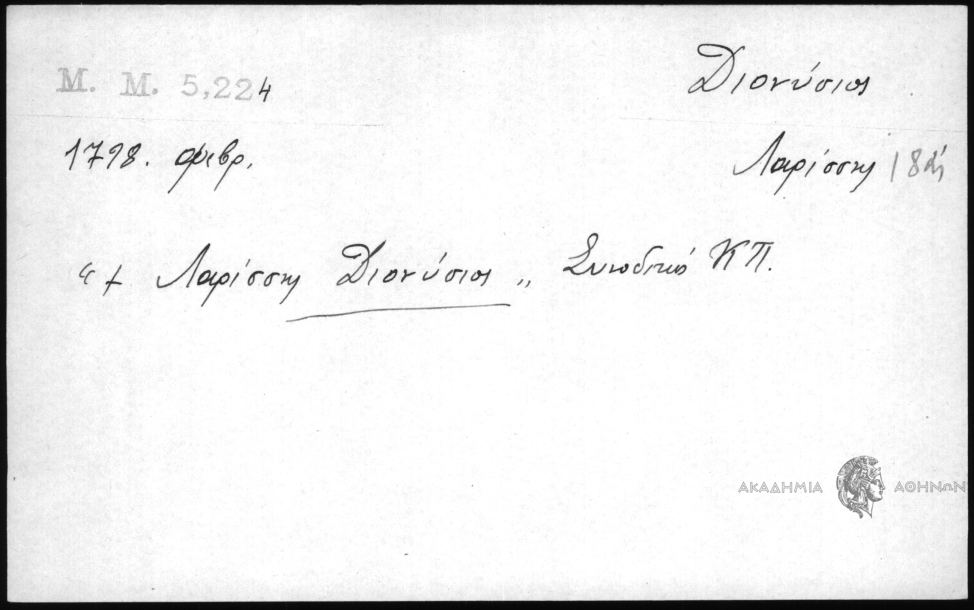 Μ. Μ. 5,224
Διονύσιος
1798. Φεβρ.
Λαρίσσης 18
"+ Λαρίσσης Διονύσιος „ Συνοδικό ΚΠ.
ΑΚΑΔΗΜΙΑ ΑΘΗΝΩΝ